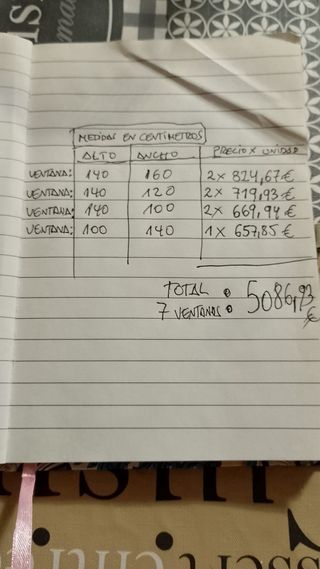 MEDIDAS EN CENTÍMETROS
ALTO ANCHO PRECIO X UNIDAD
VENTANA: 140 160 2 x 824,67 €
VENTANA: 140 120 2 x 719,93 €
VENTANA: 140 100 2 x 669,94 €
VENTANA: 100 140 1 x 657,85 €
TOTAL : 5086,93 €
7 VENTANAS